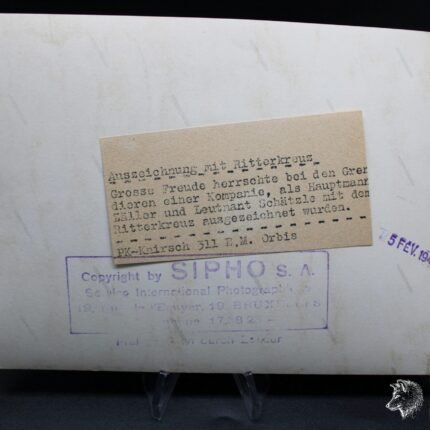 Auszeichnung mit Ritterkreuz
Grosse Freude herrschte bei den Gren
dieren einer Kompanie, als Hauptmann
Zäller und Leutnant Schätzle mit dem
Ritterkreuz ausgezeichnet wurden.
PK-Kairsch 311 E.M. Orbis
5 FEV. 194
Copyright by SIPHO S. A.
International
BRUXELLES